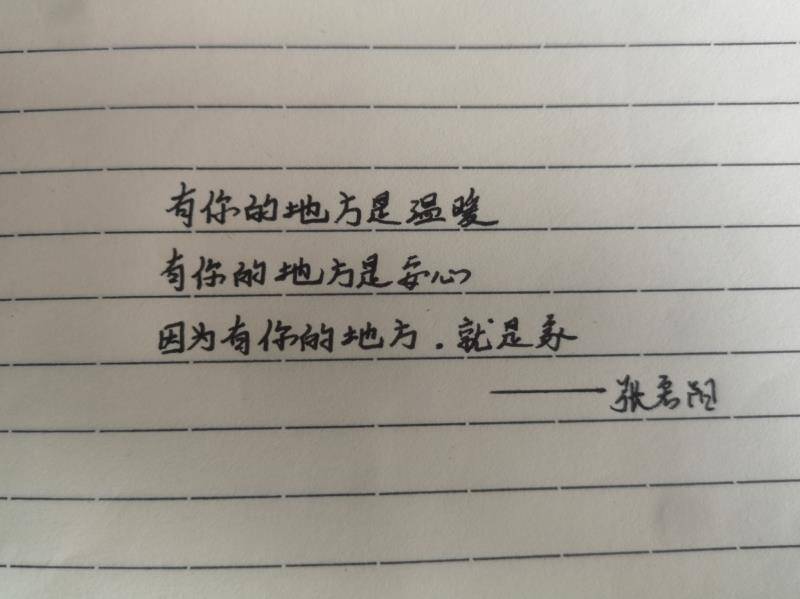 有你的地方是温暖
有你的地方是安心
因为有你的地方.就是家
——张